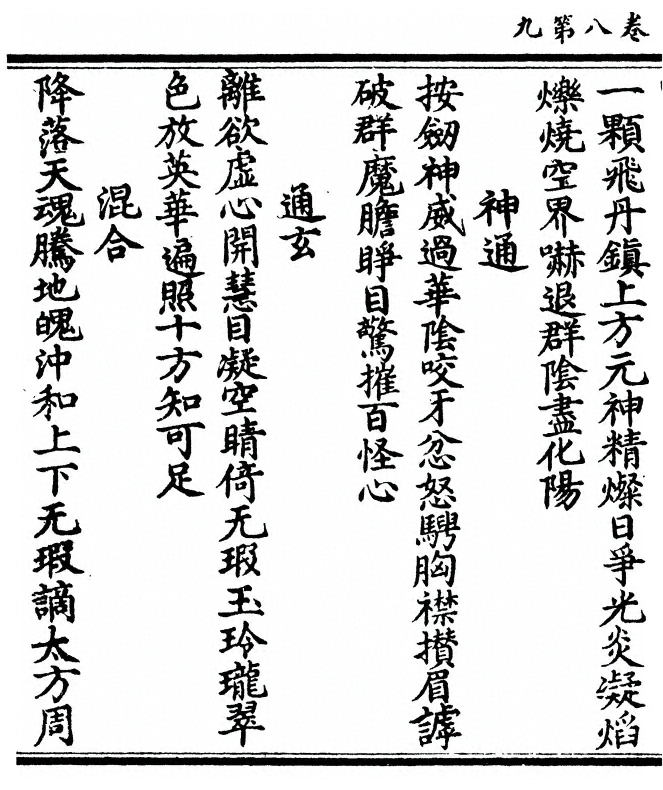 卷八第九
一顆飛丹鎮上方元神精燦日爭光炎凝焰
爍燒空界嚇退群陰盡化陽
神通
按劒神威過華陰咬牙忿怒騁胸襟攅眉謼
破群魔膽睜目驚摧百怪心
通玄
離欲虛心開慧目凝空睛倚无瑕玉玲瓏翠
色放英華遍照十方知可足
混合
降落天魂騰地魄沖和上下无瑕謫太方周